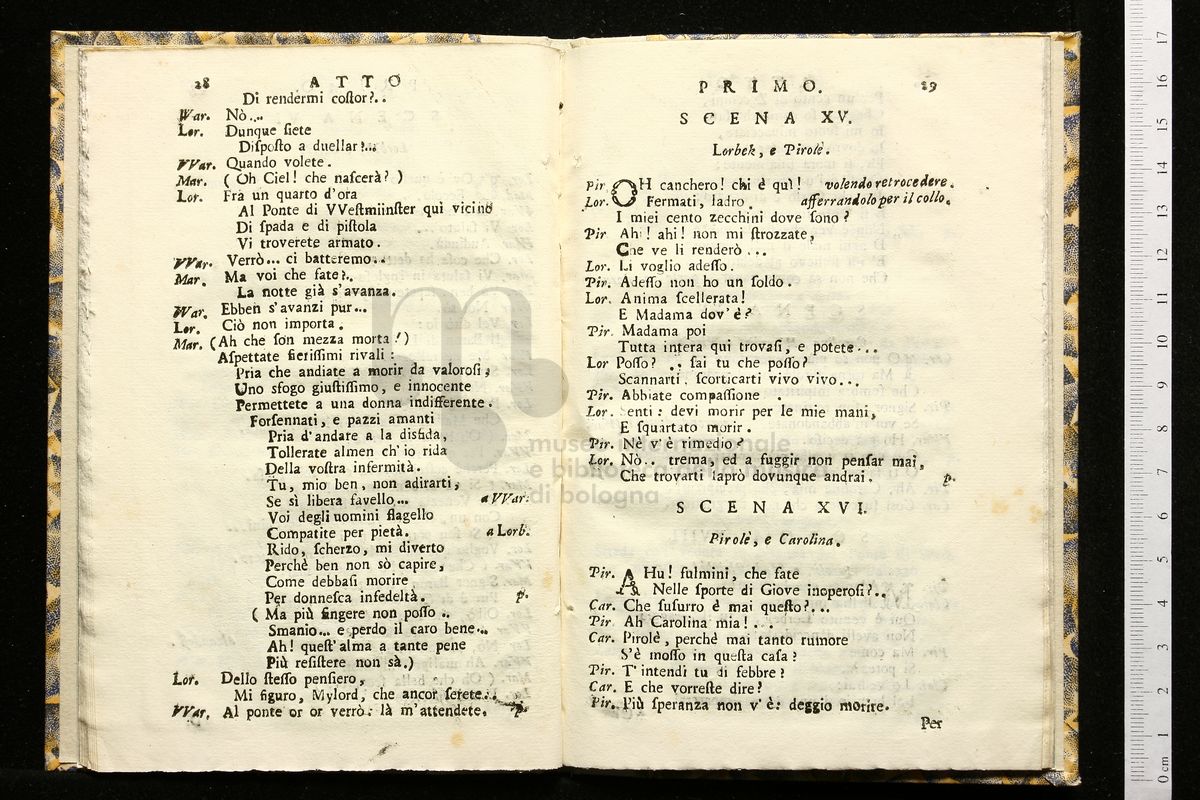 28 ATTO
Di rendermi coſtor?..
War. Nò...
Lor. Dunque ſiete
Diſpoſto a duellar?...
VVar. Quando volete.
Mar. ( Oh Ciel! che naſcerà? )
Lor. Fra un quarto d'ora
Al Ponte di VVeſtmiinſter quì vicino
Di ſpada e di piſtola
Vi troverete armato.
VVar. Verrò... ci batteremo..
Mar. Ma voi che fate?..
La notte già s'avanza.
War. Ebben s'avanzi pur...
Lor. Ciò non importa.
Mar. (Ah che ſon mezza morta!)
Aſpettate fieriſſimi rivali:
Pria che andiate a morir da valoroſi,
Uno sfogo giuſtiſſimo, e innocente
Permettete a una donna indifferente.
Forſennati, e pazzi amanti
Pria d'andare a la disfida,
Tollerate almen ch'io rida
Della voſtra infermità.
Tu, mio ben, non adirarti,
Se sì libera favello... a VVar:
Voi degli uomini flagello
Compatite per pietà. a Lorb.
Rido, ſcherzo, mi diverto
Perchè ben non sò capire,
Come debbaſi morire
Per donneſca infedeltà. p.
( Ma più fingere non poſſo ..
Smanio... e perdo il caro bene...
Ah! queſt'alma a tante pene
Più reſiſtere non sà.)
Lor. Dello ſteſſo penſiero,
Mi figuro, Mylord, che ancor ſerete...
VVar. Al ponte or or verrò: là m'attendete. p.
PRIMO. 29
SCENA XV.
Lorbek, e Pirolè.
Pir OH canchero! chi è quì! volendo retrocedere.
Lor. Fermati, ladro. afferrandolo per il collo.
I miei cento zecchini dove ſono?
Pir Ah! ahi! non mi ſtrozzate,
Che ve li renderò ...
Lor. Li voglio adeſſo.
Pir. Adeſſo non ho un ſoldo.
Lor. Anima ſcellerata!
E Madama dov'è?
Pir. Madama poi
Tutta intera qui trovaſi, e potete...
Lor Poſſo? .. ſai tu che poſſo?
Scannarti, ſcorticarti vivo vivo...
Pir. Abbiate compaſſione .
Lor. Senti: devi morir per le mie mani,
E ſquartato morir.
Pir. Nè v'è rimedio?
Lor. Nò.. trema, ed a fuggir non penſar mai,
Che trovarti ſaprò dovunque andrai. p.
SCENA XVI.
Pirolè, e Carolina.
Pir. AHu! fulmini, che fate
Nelle ſporte di Giove inoperoſi?..
Car. Che ſuſurro è mai queſto?...
Pir. Ah Carolina mia!...
Car. Pirolè, perchè mai tanto rumore
S'è moſſo in queſta caſa?
Pir. T'intendi tu di febbre?
Car. E che vorreſte dire?
Pir. Più ſperanza non v'è: deggio morire.
Per
museo internazionale
e biblioteca della musica
di bologna
0 cm 1 2 3 4 5 6 7 8 9 10 11 12 13 14 15 16 17